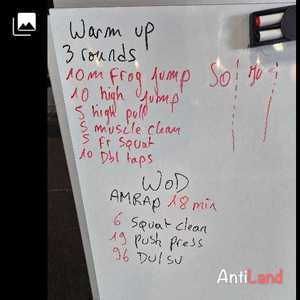 Warm up
3 rounds
10m frog jump
10 high jump
5 high pull
5 muscle clean
5 Fr squat
10 Dbl taps
WOD
AMRAP 18 min
6 squat clean
19 Push press
96 DU/SU
AntiLand